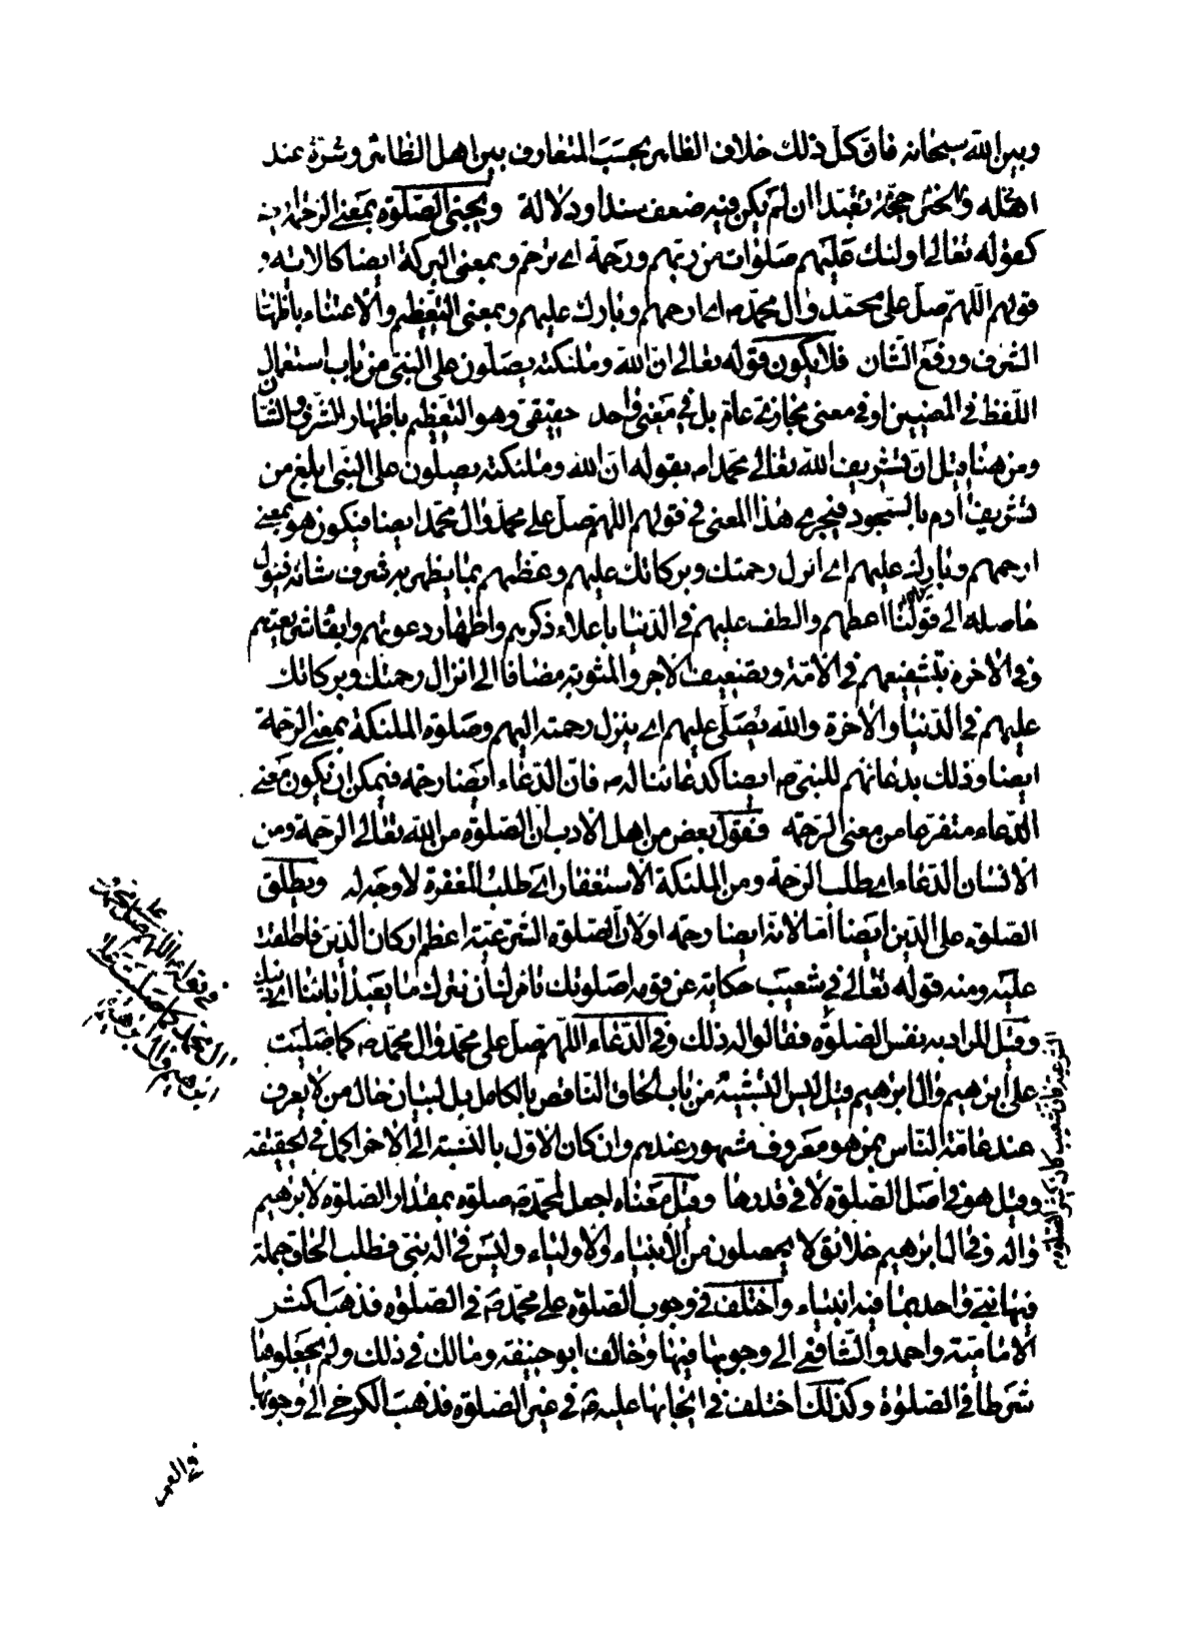 وبين الله سبحانه فان كل ذلك خلاف الظاهر بحسب المتعارف بين اهل الظاهر وشرة عند
اهله والخبر حجة تعبدا ان لم يكن فيه ضعف سندا ودلالة ويجئ الصلوة بمعنى الرحمة منه
كقوله تعالى اولئك عليهم صلوات من ربهم ورحمة اى ترحم وبمعنى البركة ايضا كالاية و
قولهم اللهم صل على محمد وال محمد ص اى ارحمهم وبارك عليهم وبمعنى التعظيم والاعتناء باظهار
الشرف ورفع الشان فلا يكون قوله تعالى ان الله وملئكته يصلون على النبى من باب استعمال
اللفظ فى المعنيين او فى معنى مجازى عام بل فى معنى واحد حقيقى وهو التعظيم باظهار الشرف والشان
ومن هنا قيل ان تشريف الله تعالى محمدا ص بقوله ان الله وملئكته يصلون على النبى ابلغ من
تشريف ادم بالسجود فيجرى هذا المعنى فى قولهم اللهم صل على محمد وال محمد ايضا فيكون هو بمعنى
ارحمهم وبارك عليهم اى انزل رحمتك وبركاتك عليهم وعظمهم بما يظهر به شرف شانه فيئول
حاصله الى قولنا اعطهم والطف عليهم فى الدنيا باعلاء ذكرهم واظهار دعوتهم وابقاء شريعتهم
وفى الاخرة بتشفيعهم فى الامة وبتضعيف الاجر والمثوبة مضافا الى انزال رحمتك وبركاتك
عليهم فى الدنيا والاخرة والله يصلى عليهم اى ينزل رحمته اليهم وصلوة الملئكة بمعنى الرحمة
ايضا وذلك بدعائهم للنبى ص ايضا كدعائنا له ص فان الدعاء ايضا رحمة فيمكن ان يكون معنى
الدعاء متفرعا من معنى الرحمة فقول بعض من اهل الادب ان الصلوة من الله تعالى الرحمة ومن
الانسان الدعاء اى طلب الرحمة ومن الملئكة الاستغفار اى طلب المغفرة لا وجه له ويطلق
الصلوة على الدين ايضا اما لانه ايضا رحمة او لان الصلوة الشرعية اعظم اركان الدين فاطلقت
عليه ومنه قوله تعالى فى شعيب حكاية عن قومه اصلوتك تامرك ان نترك ما يعبد اباؤنا اى دينك
وقيل المراد به نفس الصلوة فقالوا له ذلك وفى الدعاء اللهم صل على محمد وال محمد ص كما صليت
على ابرهيم وال ابرهيم قيل ليس التشبيه من باب الحاق الناقص بالكامل بل لبيان حال من لا يعرف
عند عامة الناس بمن هو معروف مشهور عندهم وان كان الاول بالنسبة الى الاخر اكمل فى الحقيقة
وقيل هو فى اصل الصلوة لا فى قدرها وقيل معناه اجعل لمحمد ص صلوة بمقدار الصلوة لابرهيم
واله وفى ال ابرهيم خلائق لا يحصلون من الانبياء والاولياء وليس فى اله نبى فطلب الحاق جملة
فيها نبى واحد بما فيه انبياء واختلف فى وجوب الصلوة على محمد ص فى الصلوة فذهب كثر
الامامية واحمد والشافعى الى وجوبها فيها وخالف ابو حنيفة ومالك فى ذلك ولم يجعلوها
شرطا فى الصلوة وكذلك اختلف فى ايجابها عليه ص فى غير الصلوة فذهب الكرخى الى وجوبها
الشرعية فان شعيب كان كثير الصلوة
وقوله اللهم صل على محمد و
ال محمد كما صليت على
ابرهيم وال ابرهيم
فى العمر